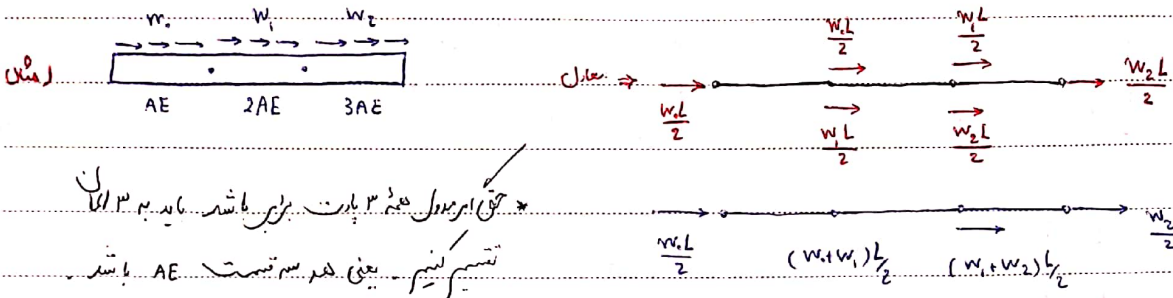 مثال
w. w₁ w₂
AE 2AE 3AE
معادل ⇒
w.L/2 w.L/2 w₁L/2 w₂L/2
w₁L/2 w₂L/2
* حتی اگر مدول همهٔ ۳ پارت برابر باشد باید به ۳ المان
تقسیم کنیم. یعنی هر سه قسمت AE باشد.
w.L/2 (w.+w₁)L/2 (w₁+w₂)L/2 w₂/2